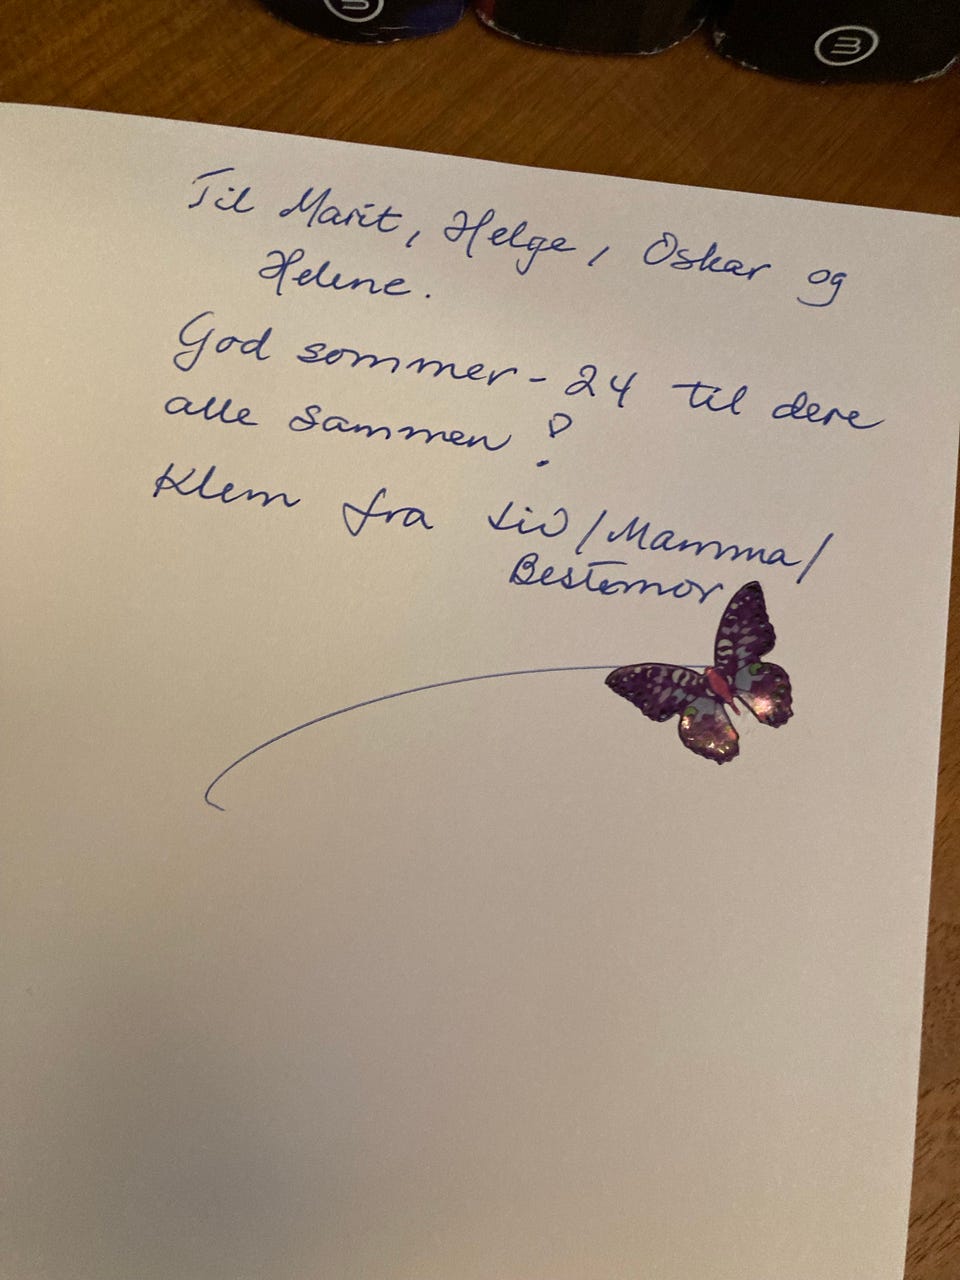 Til Marit, Helge, Oskar og
Helene.
God sommer - 24 til dere
alle sammen!
Klem fra Liv/Mamma/
Bestemor